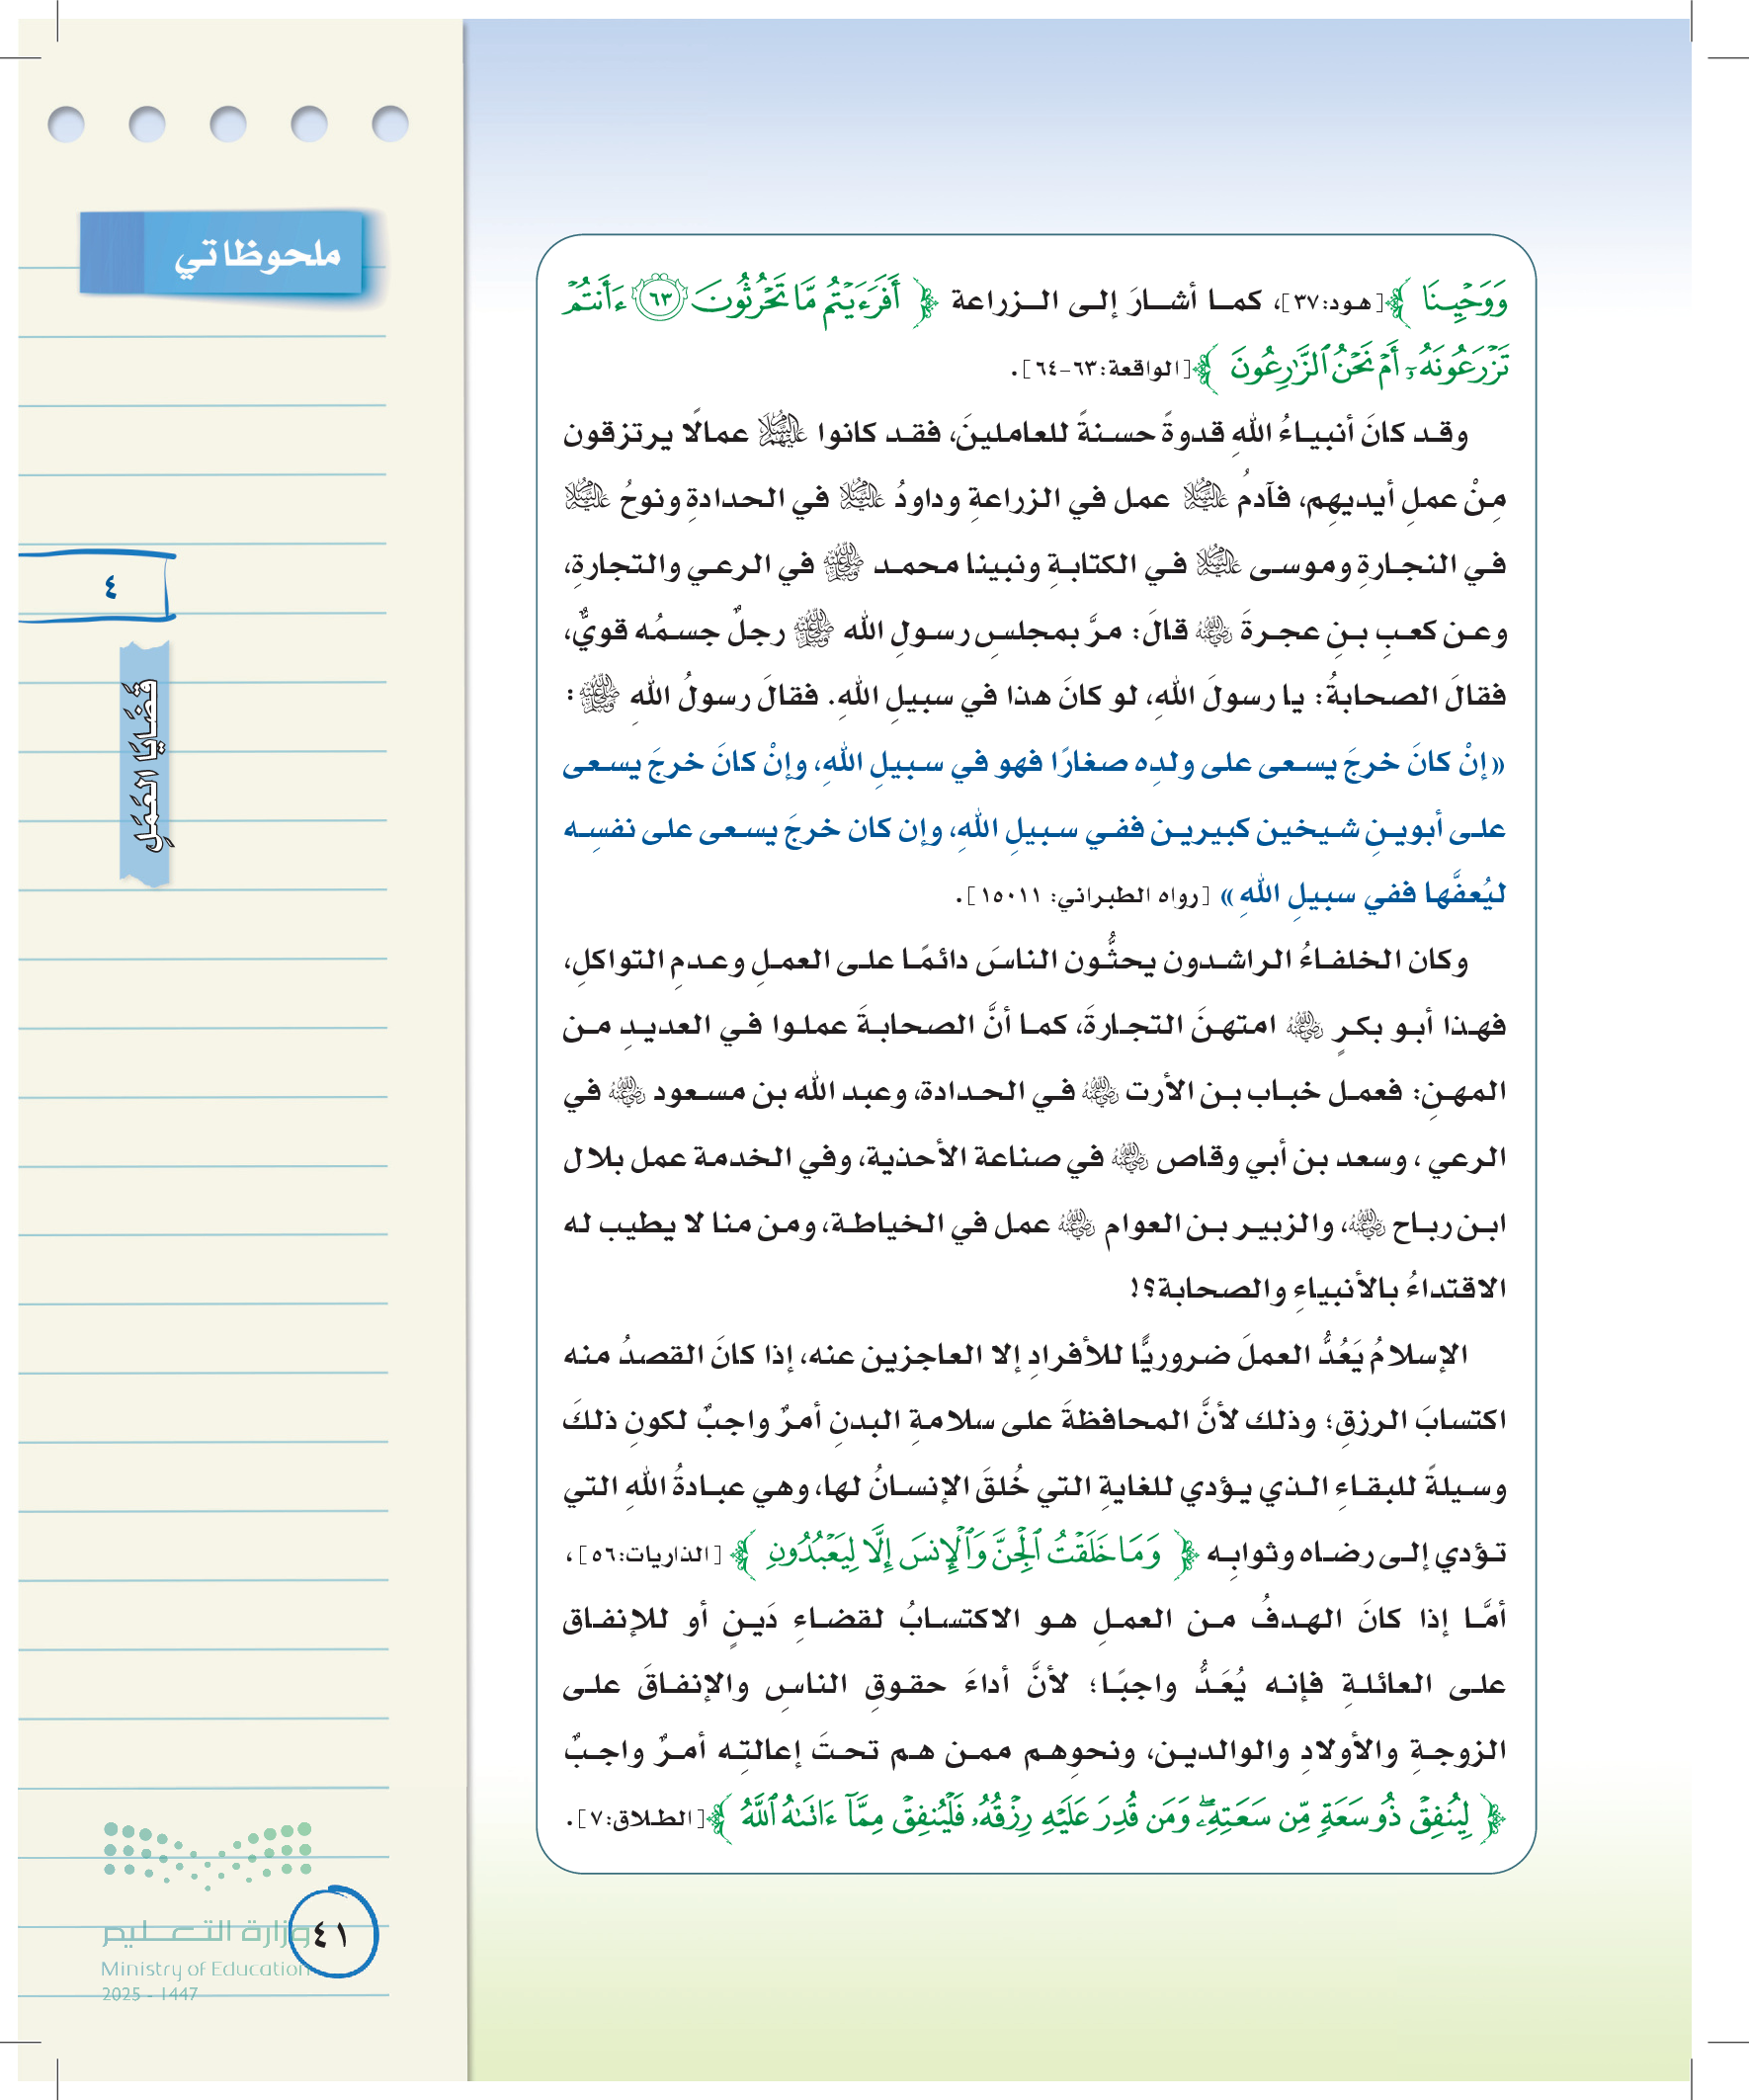 ملحوظاتي
٤
قَضَايَا العَمَلِ
وَوَحْيِنَا ﴾[هود:٣٧]، كما أشارَ إلى الزراعة ﴿ أَفَرَءَيْتُم مَّا تَحْرُثُونَ ٦٣ ءَأَنتُمْ
تَزْرَعُونَهُۥٓ أَمْ نَحْنُ ٱلزَّٰرِعُونَ ﴾[الواقعة:٦٣-٦٤].
وقد كانَ أنبياءُ اللهِ قدوةً حسنةً للعاملينَ، فقد كانوا عليهم السلام عمالًا يرتزقون
مِنْ عملِ أيديهِم، فآدمُ عليه السلام عمل في الزراعةِ وداودُ عليه السلام في الحدادةِ ونوحُ عليه السلام
في النجارةِ وموسى عليه السلام في الكتابةِ ونبينا محمد ﷺ في الرعيِ والتجارةِ،
وعن كعبِ بنِ عجرةَ رضي الله عنه قالَ: مرَّ بمجلسِ رسولِ الله ﷺ رجلٌ جسمُه قويٌّ،
فقالَ الصحابةُ: يا رسولَ اللهِ، لو كانَ هذا في سبيلِ اللهِ. فقالَ رسولُ اللهِ ﷺ:
«إنْ كانَ خرجَ يسعى على ولدِه صغارًا فهو في سبيلِ اللهِ، وإنْ كانَ خرجَ يسعى
على أبوينِ شيخين كبيرين ففي سبيلِ اللهِ، وإن كان خرجَ يسعى على نفسِه
ليُعفَّها ففي سبيلِ اللهِ» [رواه الطبراني: ١٥٠١١].
وكان الخلفاءُ الراشدون يحثُّون الناسَ دائمًا على العملِ وعدمِ التواكلِ،
فهذا أبو بكرٍ رضي الله عنه امتهنَ التجارةَ، كما أنَّ الصحابةَ عملوا في العديدِ من
المهنِ: فعمل خباب بن الأرت رضي الله عنه في الحدادة، وعبد الله بن مسعود رضي الله عنه في
الرعي ، وسعد بن أبي وقاص رضي الله عنه في صناعة الأحذية، وفي الخدمة عمل بلال
ابن رباح رضي الله عنه، والزبير بن العوام رضي الله عنه عمل في الخياطة، ومن منا لا يطيب له
الاقتداءُ بالأنبياءِ والصحابة؟!
الإسلامُ يَعُدُّ العملَ ضروريًّا للأفرادِ إلا العاجزين عنه، إذا كانَ القصدُ منه
اكتسابَ الرزقِ؛ وذلك لأنَّ المحافظةَ على سلامةِ البدنِ أمرٌ واجبٌ لكونِ ذلكَ
وسيلةً للبقاءِ الذي يؤدي للغايةِ التي خُلقَ الإنسانُ لها، وهي عبادةُ اللهِ التي
تؤدي إلى رضاه وثوابِه ﴿ وَمَا خَلَقْتُ ٱلْجِنَّ وَٱلْإِنسَ إِلَّا لِيَعْبُدُونِ ﴾ [الذاريات:٥٦]،
أمَّا إذا كانَ الهدفُ من العملِ هو الاكتسابُ لقضاءِ دَينٍ أو للإنفاق
على العائلةِ فإنه يُعَدُّ واجبًا؛ لأنَّ أداءَ حقوقِ الناسِ والإنفاقَ على
الزوجةِ والأولادِ والوالدين، ونحوِهم ممن هم تحتَ إعالتِه أمرٌ واجبٌ
﴿ لِيُنفِقْ ذُو سَعَةٍ مِّن سَعَتِهِۦ وَمَن قُدِرَ عَلَيْهِ رِزْقُهُۥ فَلْيُنفِقْ مِمَّآ ءَاتَىٰهُ ٱللَّهُ ﴾[الطلاق:٧].
وزارة التعليم
Ministry of Education
2025 - 1447
٤١